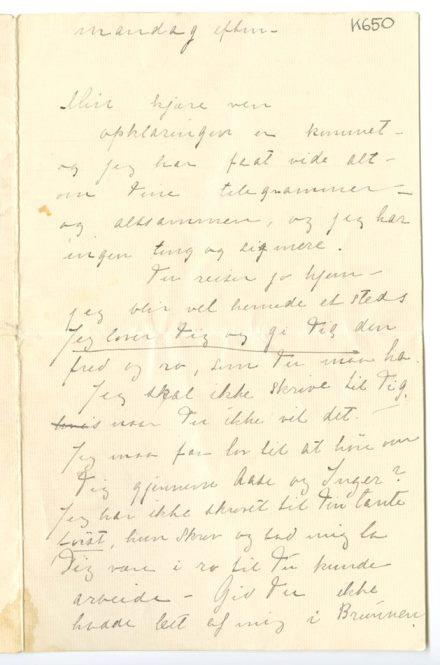 mandag eften –
K650
Min kjære ven
opklaringen er kommet –
og jeg har faat vide alt –
om dine telegrammer –
og altsammen, og jeg har
ingen ting og sige mere.
Du reiser jo hjem –
jeg blir vel hernede et steds
Jeg lover dig og gi dig den
fred og ro, som du maa ha.
Jeg skal ikke skrive til dig,
naar du ikke vil det. –
Jeg maa faa lov til at höre om
dig gjennem Aase og Inger?
Jeg har ikke skrevet til din tante
sidst, hun skrev og bad mig la
dig være i ro til du kunde
arbeide – Gid du ikke
hadde lett af mig i Brunnen,